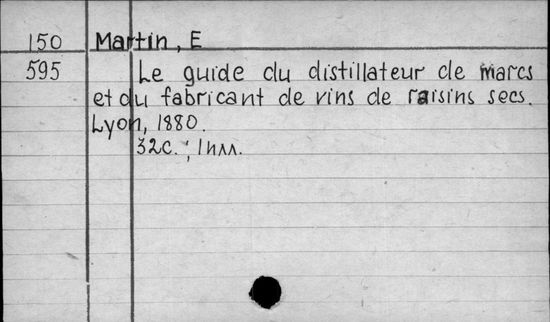 150 Martin, E
595 Le guide du distillateur de marcs
et du fabricant de vins de raisins secs.
Lyon, 1880.
32с. ; 1 илл.